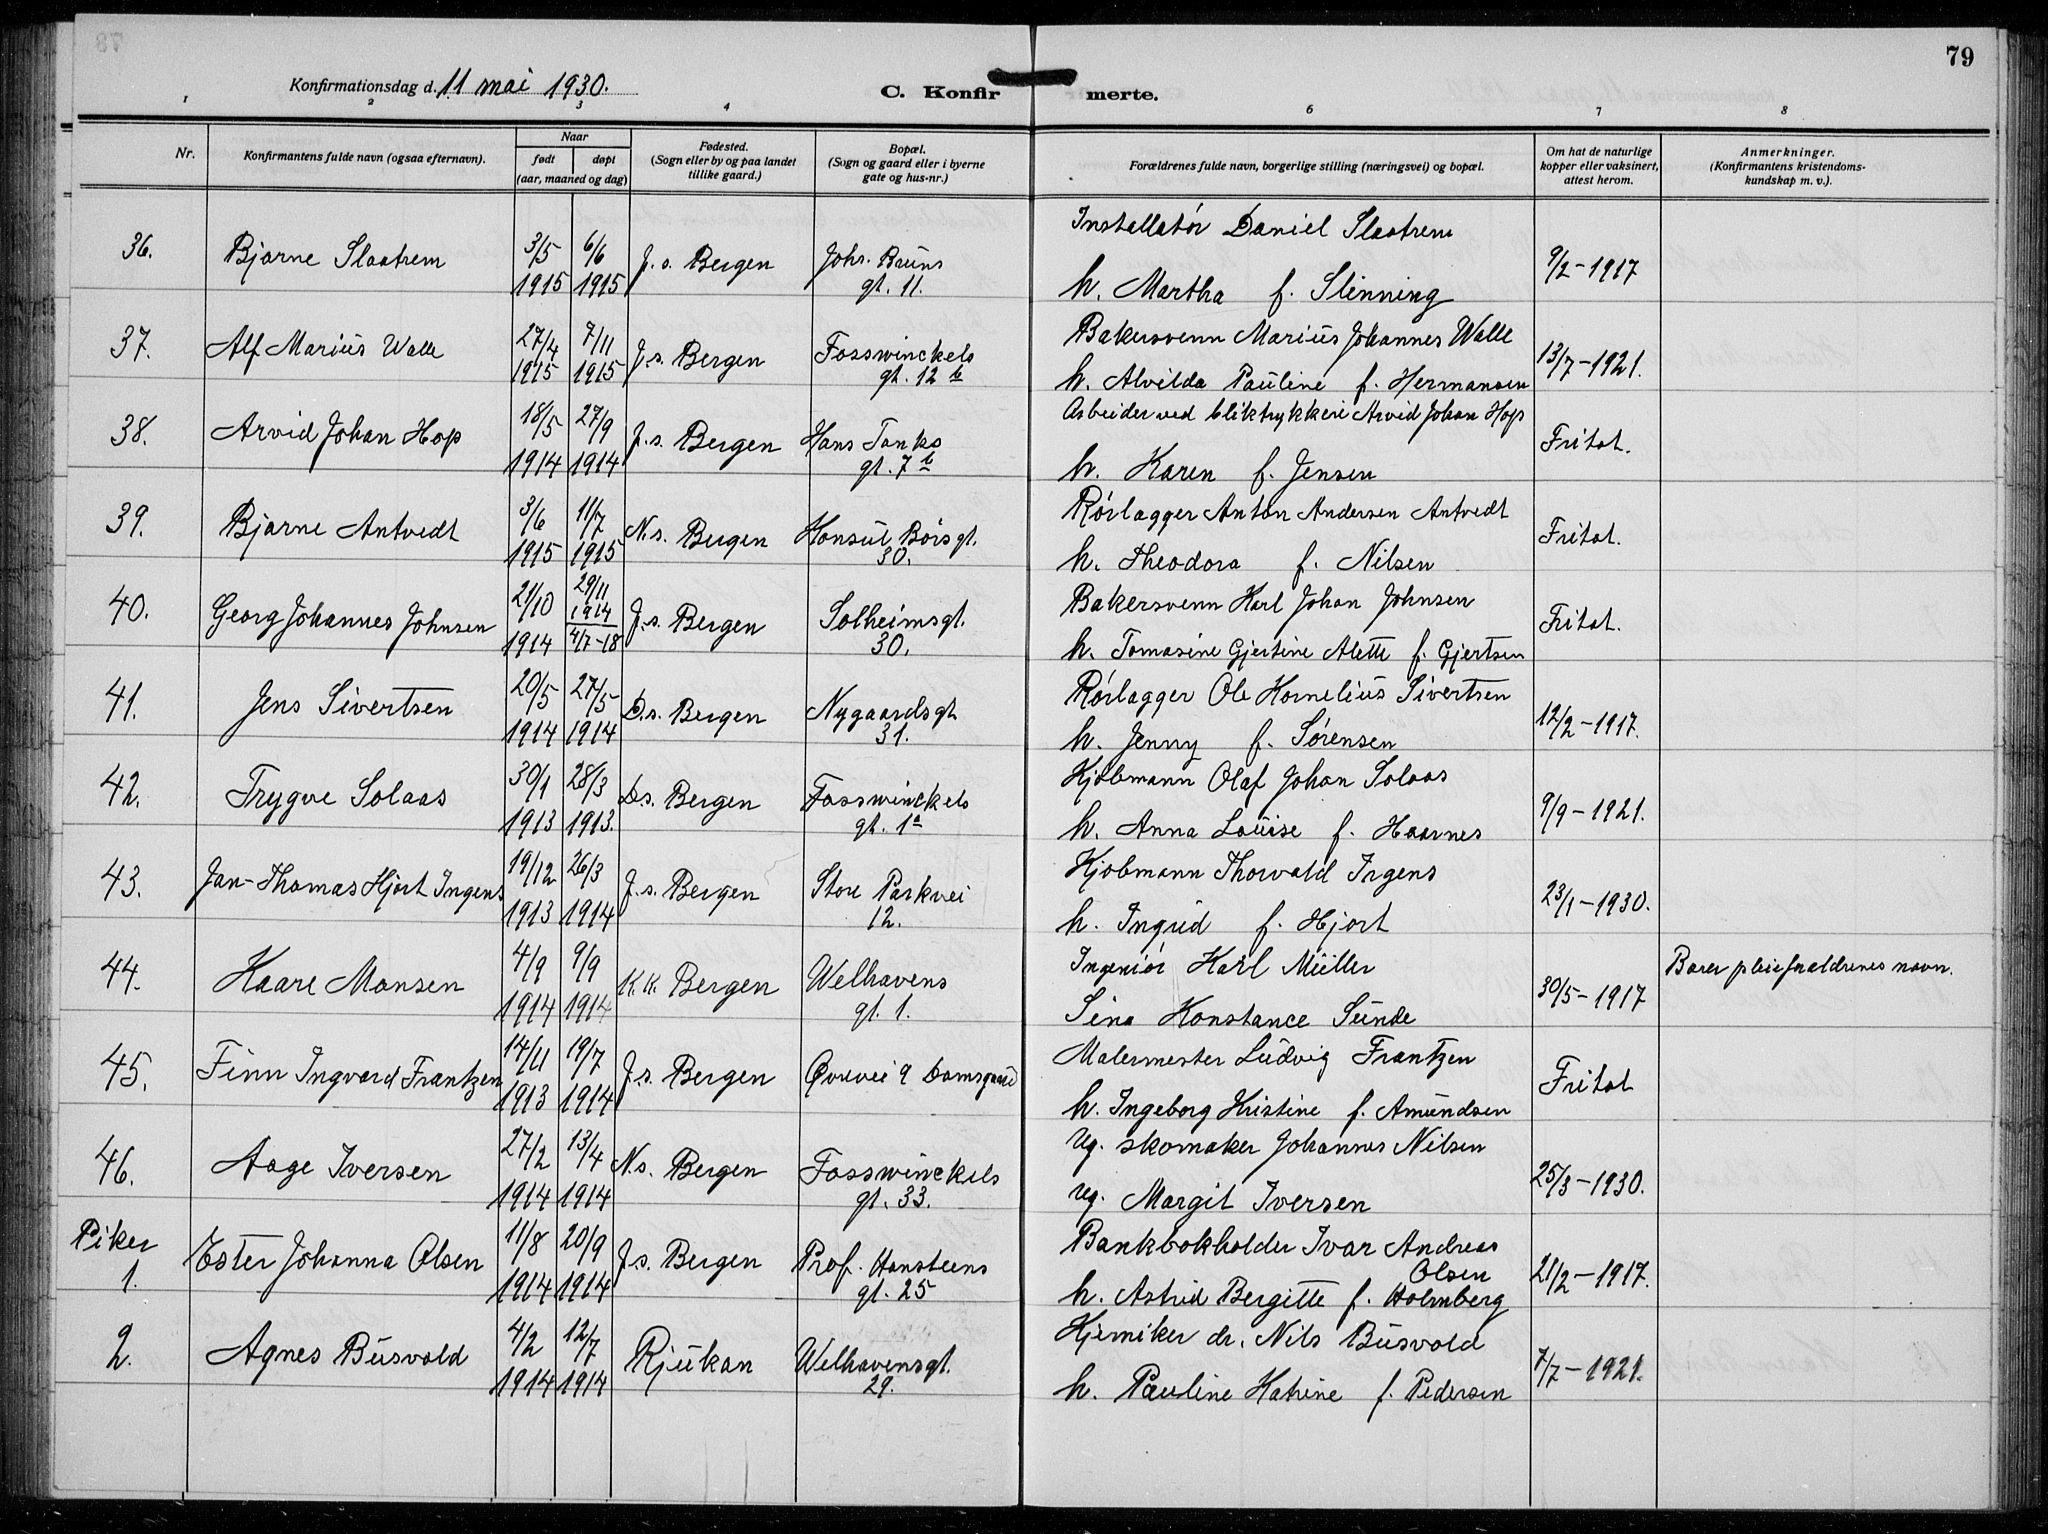 79
Konfirmationsdag d. 11 mai 1930.
C. Konfirmerte.
1 2 3 4 6 7 8
Nr.
Konfirmantens fulde navn (ogsaa efternavn).
Naar
født
døpt
(aar, maaned og dag)
Fødested.
(Sogn eller by og paa landet
tillike gaard.)
Bopæl.
(Sogn og gaard eller i byerne
gate og hus-nr.)
Forældrenes fulde navn, borgerlige stilling (næringsvei) og bopæl.
Om hat de naturlige
kopper eller vaksinert,
attest herom.
Anmerkninger.
(Konfirmantens kristendoms-
kundskap m. v.).
36. Bjarne Slaatrem 3/5 1915 6/6 1915 J. s. Bergen Johs. Bruns gt. 11.
Installatör Daniel Slaatrem
h. Martha f. Slinning
9/2-1917
37. Alf Marius Walle 27/4 1915 7/11 1915 J. s. Bergen Fosswinckels gt. 12 b
Bakersvenn Marius Johannes Walle
h. Alvilda Pauline f. Hermansen
13/7-1921.
38. Arvid Johan Hop 18/5 1914 27/9 1914 J. s. Bergen Hans Tanks gt. 7 b
Arbeider ved bliktrykkeri Arvid Johan Hop
h. Karen f. Jensen
Fritat.
39. Bjarne Antvedt 3/6 1915 11/7 1915 N. s. Bergen Konsul Börs gt. 30.
Rörlægger Anton Andersen Antvedt
h. Theodora f. Nilsen
Fritat.
40. Georg Johannes Johnsen 21/10 1914 29/11 1914 4/7-18 J. s. Bergen Solheimsgt. 30.
Bakersvenn Karl Johan Johnsen
h. Tomasine Gjertine Alette f. Gjertsen
Fritat.
41. Jens Sivertsen 20/5 1914 27/5 1914 D. s. Bergen Nygaardsgt 31.
Rörlægger Ole Kornelius Sivertsen
h. Jenny f. Sørensen
12/2-1917.
42. Trygve Solaas 30/1 1913 28/3 1913. D. s. Bergen Fosswinckels gt. 1 a
Kjøbmann Olaf Johan Solaas
h. Anna Louise f. Haarnes
9/9-1921.
43. Jan-Thomas Hjort Irgens 19/12 1913 26/3 1914 J. s. Bergen Store Parkvei 12.
Kjøbmann Thorvald Irgens
h. Ingrid f. Hjort
23/1-1930.
44. Kaare Monsen 4/9 1914 9/9 1914 K. K. Bergen Welhavens gt. 1.
Ingeniør Karl Müller
Sina Konstance Sunde
30/5-1917
Bærer pleieforældrenes navn.
45. Finn Ingvard Frantzen 14/11 1913 19/7 1914 J. s. Bergen Øvrevei 9 Damsgaard
Malermester Ludvig Frantzen
h. Ingeborg Kristine f. Amundsen
Fritat
46. Aage Iversen 27/2 1914 13/4 1914 N. s. Bergen Fosswinckels gt. 33.
Ug. skomaker Johannes Nilsen
Ug. Margit Iversen
25/3-1930.
Piker
1. Ester Johanna Olsen 11/8 1914 20/9 1914 J. s. Bergen Prof. Hansteens gt. 25
Bankbokholder Ivar Andreas Olsen
h. Astrid Bergitte f. Holmberg
21/2-1917.
2. Agnes Busvold 4/2 1914 12/7 1914 Rjukan Welhavensgt. 29.
Kjemiker dr. Nils Busvold
h. Pauline Katrine f. Pedersen
7/7-1921.